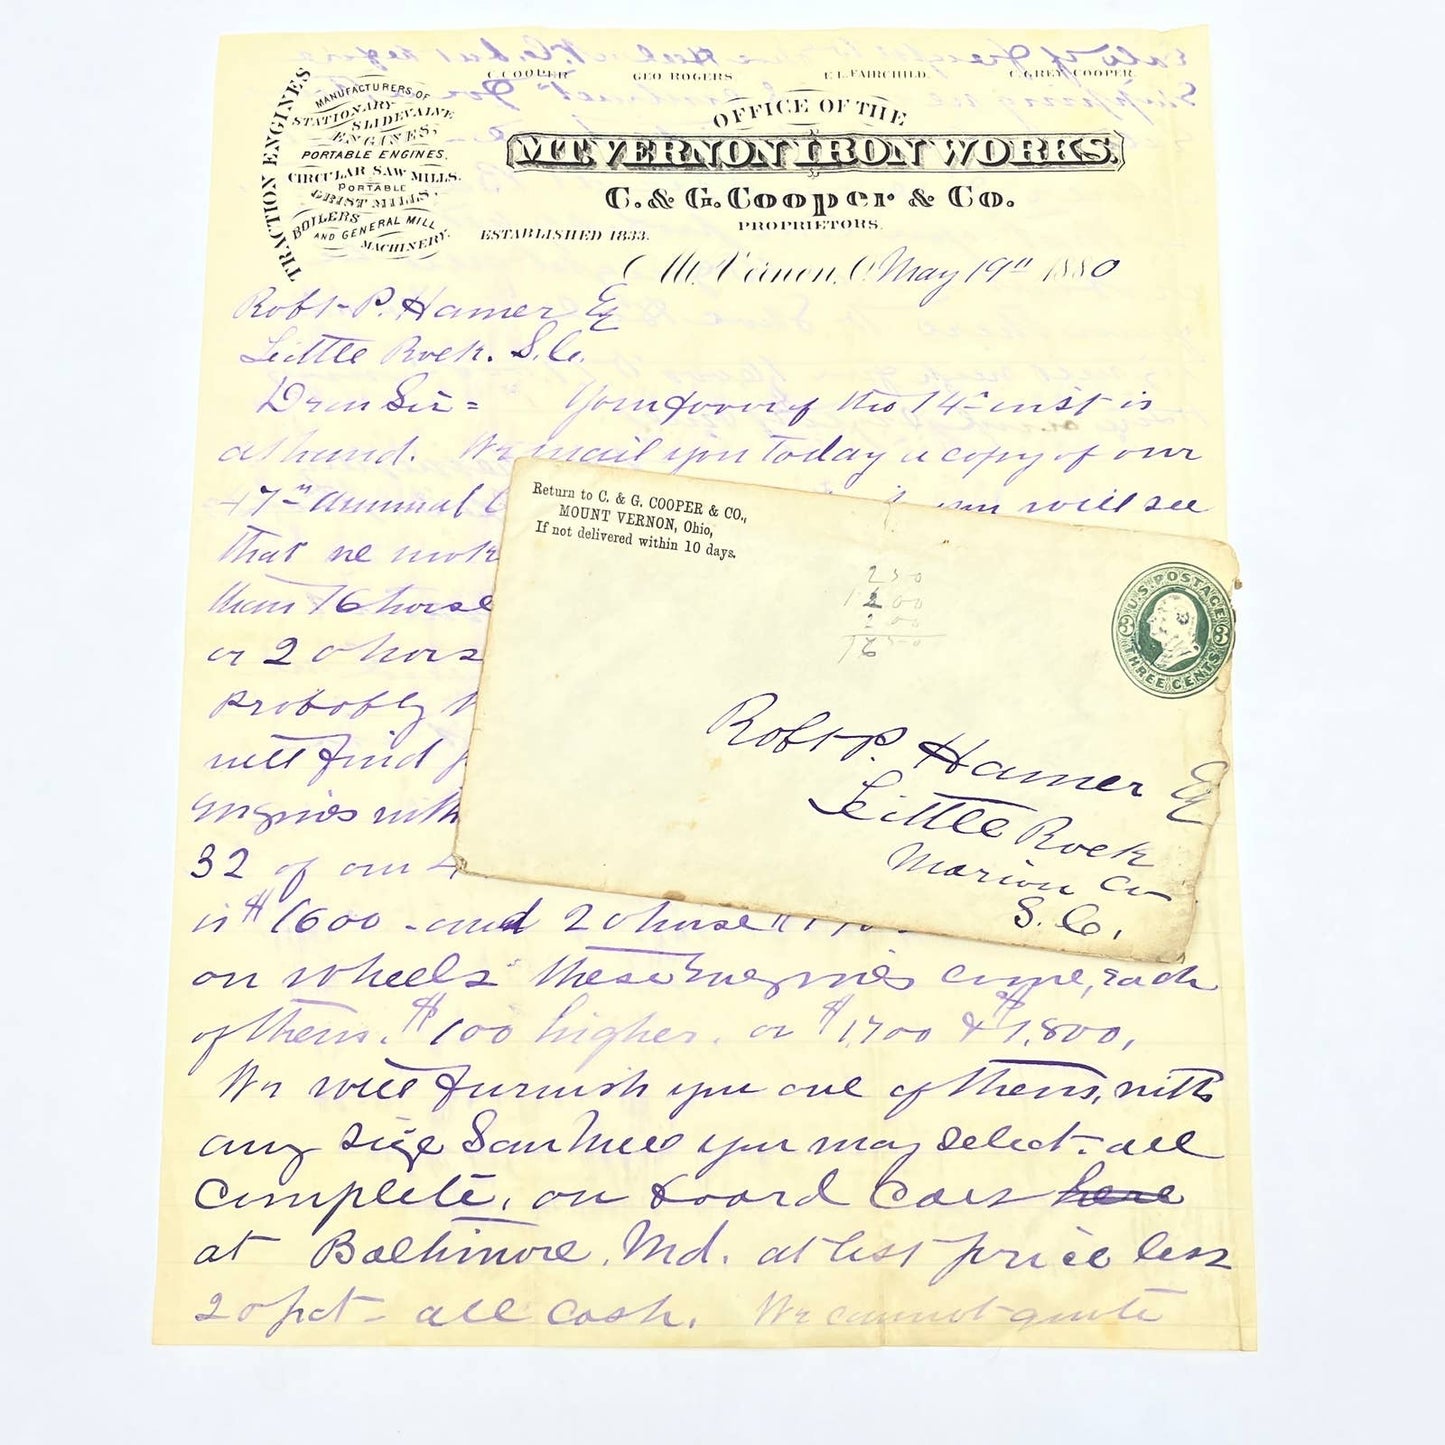 C. COOPER. GEO ROGERS. F. L. FAIRCHILD. C. GREY COOPER.
TRACTION ENGINES
MANUFACTURERS OF
STATIONARY
SLIDE VALVE
ENGINES,
PORTABLE ENGINES,
CIRCULAR SAW MILLS.
PORTABLE
GRIST MILLS,
BOILERS
AND GENERAL MILL
MACHINERY.
OFFICE OF THE
MT. VERNON IRON WORKS.
C. & G. Cooper & Co.
PROPRIETORS.
ESTABLISHED 1833.
Mt. Vernon, O. May 19th 1880
Robt P. Hamer Esq
Little Rock. S.C.
Dear Sir = Your favor of the 14th inst is
at hand. We mail you today a copy of our
47th annual you will see
that we make
than 16 horse
or 20 horse
probably
will find
engines with
32 of our
is $1600 - and 20 horse
on wheels these engines come, each
of them. $100 higher. or $1,700 & $1,800,
We will furnish you one of them, with
any size Saw Mill you may select - all
complete, on board cars here
at Baltimore, Md. at list price less
20 pct - all cash. We cannot quote
Return to C. & G. COOPER & CO.,
MOUNT VERNON, Ohio,
If not delivered within 10 days.
250
1200
200
1650
U.S. POSTAGE
3 3
THREE CENTS
Robt P. Hamer Esq
Little Rock
Marion Co
S. C.,